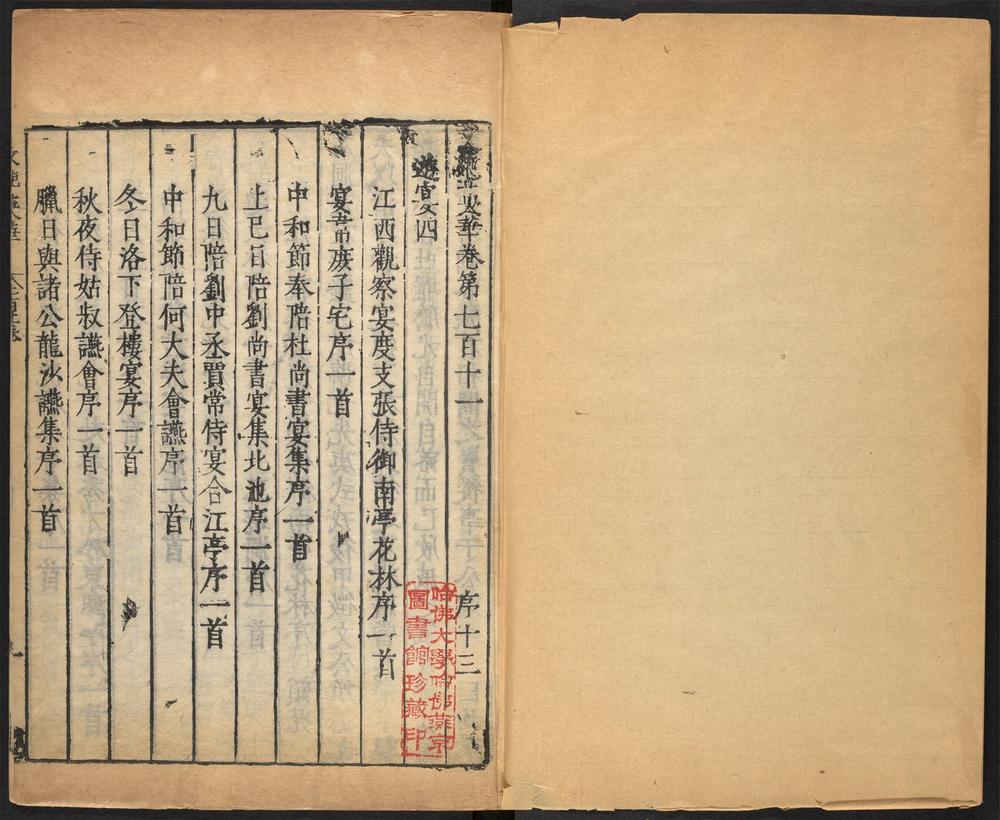 文苑英華卷第七百十一 序十三
遊宴四
江西觀察宴度支張侍御南亭花林序一首
宴 庾子宅序一首
中和節奉陪杜尚書宴集序一首
上巳日陪劉尚書宴集北池序一首
九日陪劉中丞賈常侍宴合江亭序一首
中和節陪何大夫會讌序一首
冬日洛下登樓宴序一首
秋夜侍姑叔讌會序一首
臘日與諸公龍沙讌集序一首
文苑英華
哈佛大學哈佛燕京
圖書館珍藏印